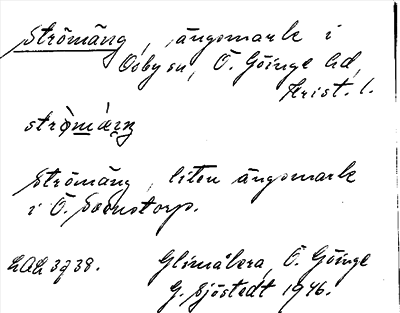 Strömäng, ängsmark i
Osby sn, Ö. Göinge hd,
Krist. l.
strö̀mä́ŋ
Strömäng, liten ängsmark
i Ö.
LAL 3938. Glimåkra, Ö. Göinge
G. Sjöstedt 1946.